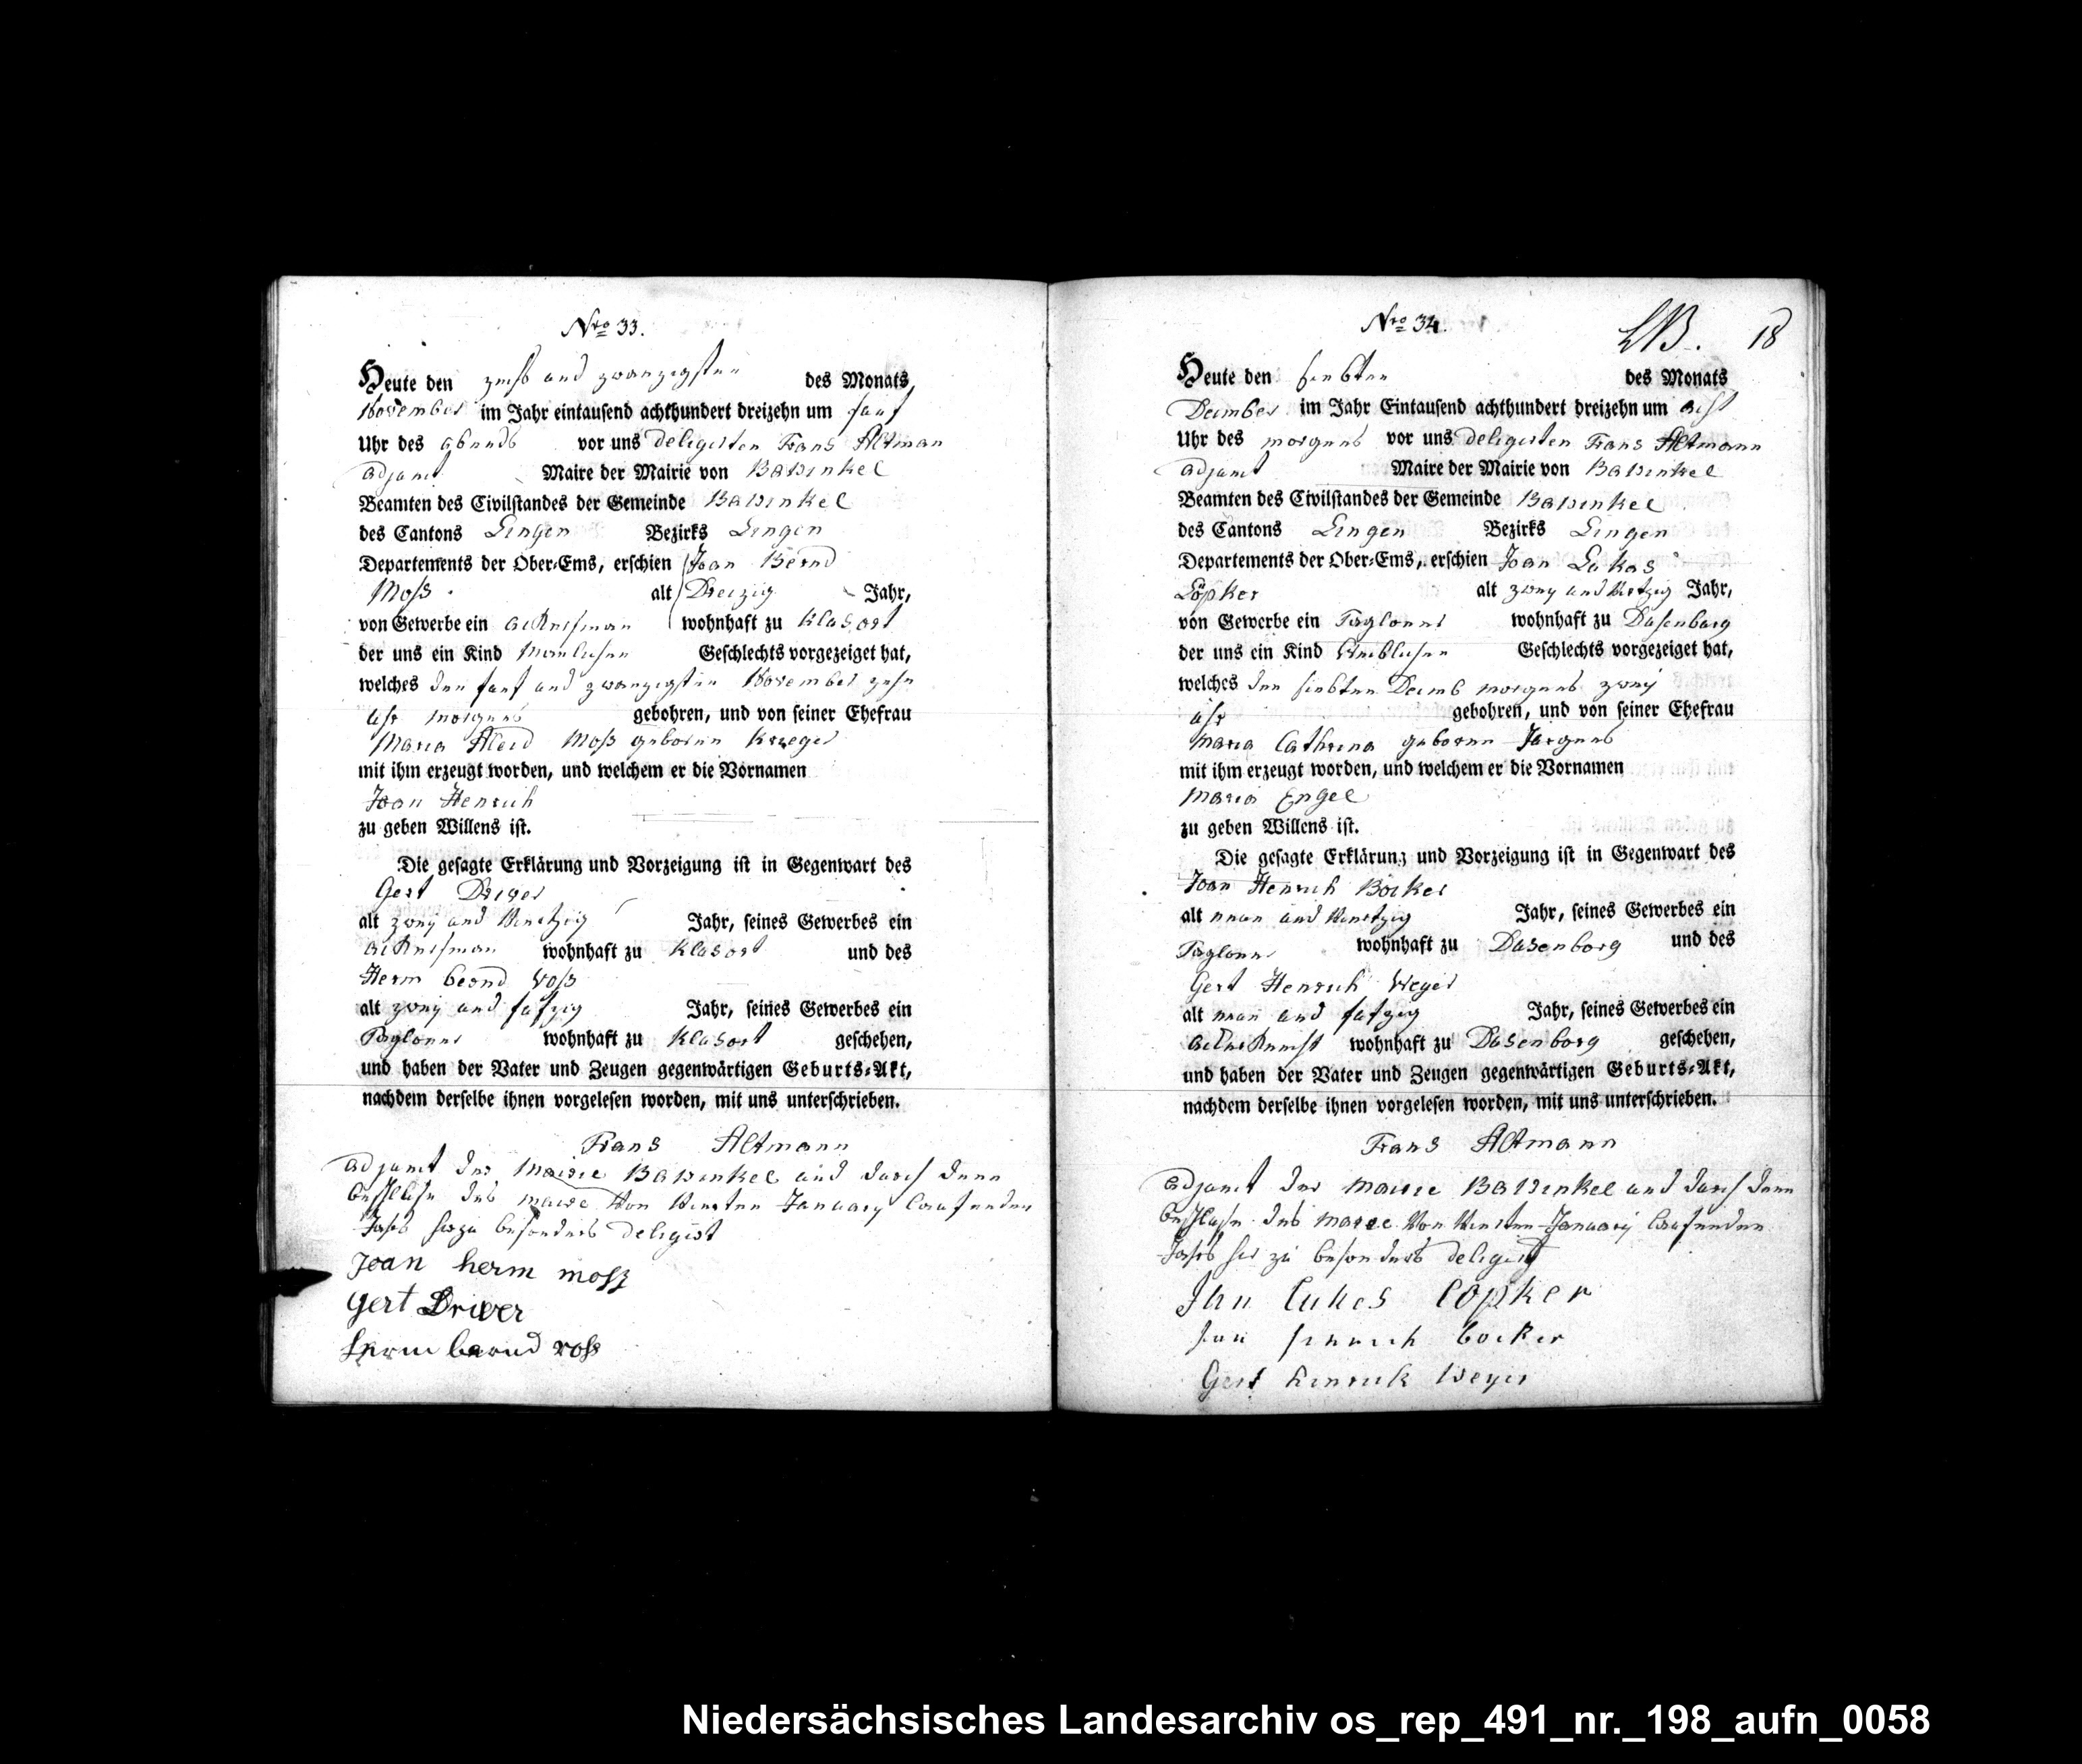 Nro 33.
Heute den sechs und zwanzigsten des Monats
November im Jahr eintausend achthundert dreizehn um fünf
Uhr des abends vor uns deligirten Frans Altman
adjunct Maire der Mairie von Bawinkel
Beamten des Civilstandes der Gemeinde Bawinkel
des Cantons Lingen Bezirks Lingen
Departements der Ober-Ems, erschien Joan Bernd
Moß alt Dreizig Jahr,
von Gewerbe ein Ackersman wohnhaft zu Klasort
der uns ein Kind Mänlichen Geschlechts vorgezeiget hat,
welches den fünf und zwanzigsten November zehn
Uhr morgens gebohren, und von seiner Ehefrau
Maria Aleid Moß geboren Krieger
mit ihm erzeugt worden, und welchem er die Vornamen
Joan Henrich
zu geben Willens ist.
Die gesagte Erklärung und Vorzeigung ist in Gegenwart des
Gert Driver
alt zwey und Viertzig Jahr, seines Gewerbes ein
Ackersman wohnhaft zu Klasort und des
Herm bernd Voß
alt zwey und fufzig Jahr, seines Gewerbes ein
Taglöner wohnhaft zu Klasort geschehen,
und haben der Vater und Zeugen gegenwärtigen Geburts-Akt,
nachdem derselbe ihnen vorgelesen worden, mit uns unterschrieben.
Frans Altmann
adjunct der Mairie Bawinkel und durch denn
beschluße des maire Von Viersten January laufenden
Jahrs hirzu besonders deligirt
Joan herm moß
gert Driver
Herm bernd voß
Nro 34.
18
Heute den siebten des Monats
Decmber im Jahr Eintausend achthundert dreizehn um acht
Uhr des morgens vor uns deligirten Frans Altmann
adjunct Maire der Mairie von Bawinkel
Beamten des Civilstandes der Gemeinde Bawinkel
des Cantons Lingen Bezirks Lingen
Departements der Ober-Ems, erschien Joan Lukas
Löpker alt zwey und Viertzig Jahr,
von Gewerbe ein Taglöner wohnhaft zu Dusenburg
der uns ein Kind Weiblichen Geschlechts vorgezeiget hat,
welches den siebten Decmb morgens zwey
Uhr gebohren, und von seiner Ehefrau
Maria Cathrina geboren Jürgens
mit ihm erzeugt worden, und welchem er die Vornamen
Maria Engel
zu geben Willens ist.
Die gesagte Erklärung und Vorzeigung ist in Gegenwart des
Joan Henrich Böcker
alt neun und Viertzig Jahr, seines Gewerbes ein
Taglöner wohnhaft zu Dusenborg und des
Gert Henrich Weyer
alt neun und fufzig Jahr, seines Gewerbes ein
wohnhaft zu Dusenborg geschehen,
und haben der Vater und Zeugen gegenwärtigen Geburts-Akt,
nachdem derselbe ihnen vorgelesen worden, mit uns unterschrieben.
Frans Altmann
adjunct der mairie Bawinkel und durch denn
beschluße des maire Von Viersten January laufenden
Jahrs hir zu besonders deligirt
Jan Lukes Lopker
Jan hinrich böcker
Gert henrick weyer
Niedersächsisches Landesarchiv os_rep_491_nr._198_aufn_0058